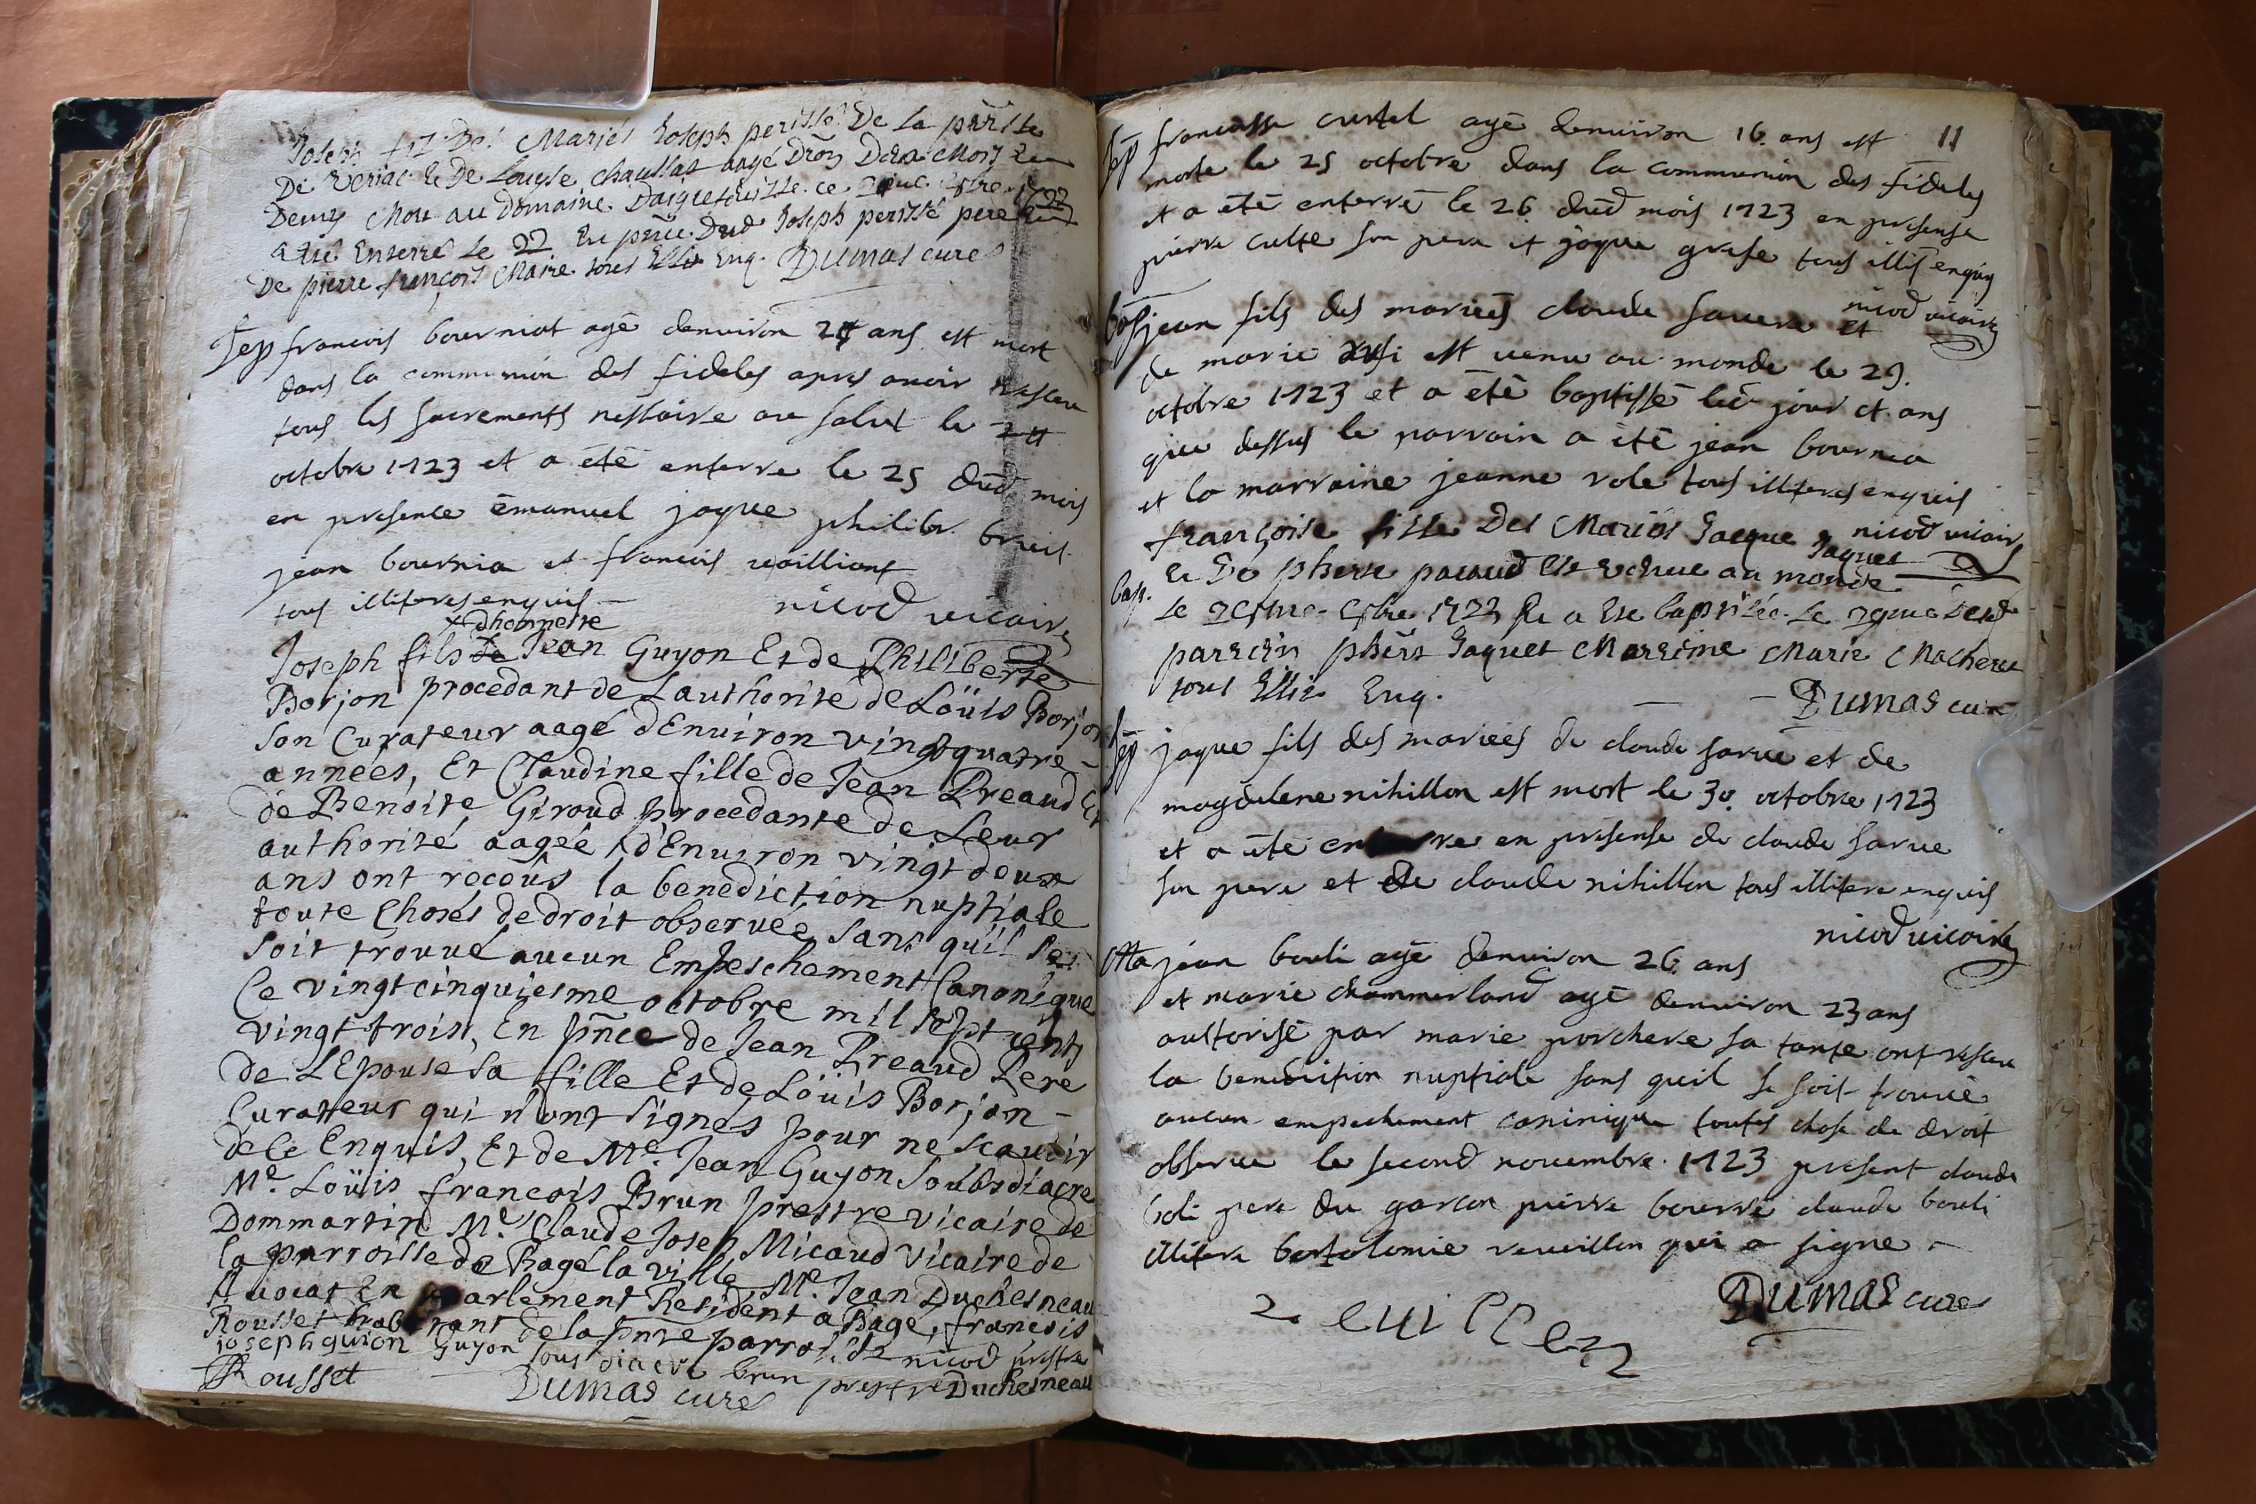 Joseph fiz Des Mariés Joseph perissé De la prrsse
De Veriac & De Louyse chaussat aagé Dron Deux Mois
Demy Mort au Domaine D'aiguetuisse ce
a été Enterré Le 22 En pñce Dud Joseph perissé pere
De pierre françois Maire tous Illit Enq. Dumas curé
Sep francois bourniat agé denuiron 24 ans est mort
dans la communion des fideles apres auoir ressu
tous les sacrements nessaire au salut le 24
octobre 1723 et a été enterre le 25 dud mois
en presence émanuel jaque philibr bruit
jean bournia et francois uailliant
tous illiteres enquis
nicod uicaire
x dhonneste
Joseph fils de Jean Guyon Et de Philiberte
Borjon procedant de Lauthorite de Loüis Borjon
son Curateur aagé dEnuiron vingt quatre
années, Et Claudine fille de Jean Preaud Et
de Benoite Giroud procedante de Leur
authorité aagée dEnuiron vingt deux
ans ont reçeus la benediction nuptiale
toute Choses de droit obseruée sans quil se
soit trouué aucun Empeschement Canonique
Ce vingt cinquiesme octobre mil sept cent
vingt trois, En pñce de Jean Preaud Pere
de LEpouse sa fille Et de Loüis Borjon
Curateur qui n'ont signés pour ne scauoir
de ce Enquis, Et de Me. Jean Guyon Soubsdiacre
Me. Loüis francois Brun prestre vicaire de
Dommartin Me. Claude Joseph Micaud Vicaire de
la parroisse de Bagé la ville, Me. Jean Duchesneau
Auocat En parlement Resident a Bagé, francois
Rousset habitant de la pnte parroisse
joseph guion Guyon sous diacre nicod prestre
Rousset brun prestre Duchesneau
Dumas curé
11
Sep francoisse curtel agé denuiron 16 ans est
morte le 25 octobre dans la communion des fideles
et a été enterré le 26 dud mois 1723 en presense
pierre culte son pere et jaque grase tous illis enquis
nicod uicaire
bap jean fils des mariées claude sauera et
de marie est uenu au monde le 29
octobre 1723 et a été baptissé led jour et ans
que dessus le parrain a été jean bournia
et la marraine jeanne vole tous illiteres enquis
nicod uicair
bap. françoise fille Des Mariés Jacque Jaquet
& De phere pacaud Est Venue au monde
Le 1723 & a Ete baptisée Le
parrein phers Jaquet Marrine Marie Macherre
tous Illit Enq.
Dumas curé
Sep jaque fils des mariées de claude sarue et de
magdelene nihillon est mort le 30 octobre 1723
et a été en re en presense de claude sarue
son pere et de claude nihillon tous illitere enquis
nicod uicaire
Ma jean bouli agé denuiron 26 ans
et marie chammerland agé denuiron 23 ans
autorisé par marie porchere sa tante ont resseu
la benediction nuptiale sans quil se soit trouué
aucun empechement caninique toutes chose de droit
obserue le second nouembre 1723 present claude
boli pere du garcon pierre bourre claude bouli
illitere bortolomie reueillon qui a signe
Dumas curé